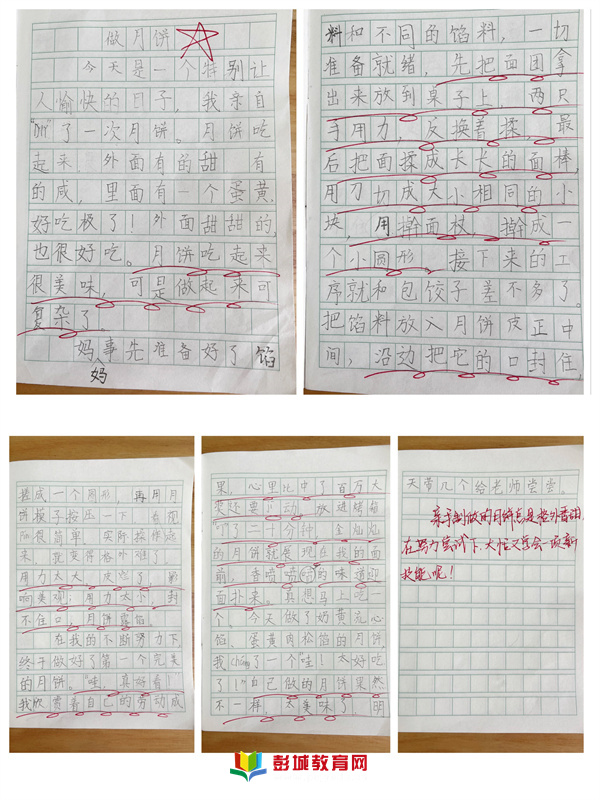 做月饼
今天是一个特别让
人愉快的日子，我亲自
"DIY"了一次月饼。月饼吃
起来，外面有的甜 有
的咸，里面有一个蛋黄，
好吃极了！外面甜甜的，
也很好吃。月饼吃起来
很美味，可是做起来可
复杂了。
妈事先准备好了馅
妈
料和不同的馅料，一切
准备就绪，先把面团拿
出来放到桌子上，两只
手用力，反换着揉，最
后把面揉成长长的面棒，
用刀切成大小相同的小
块，用擀面杖，擀成一
个小圆形，接下来的工
序就和包饺子差不多了。
把馅料放入月饼皮正中
间，沿边把它的口封住，
揉成一个圆形，再用月
饼模子按压一下
很简单，实际操作起
来，就变得格外难了。
用力太大，皮烂了，影
响美观；用力太小，封
不住口，月饼露馅。
在我的不断努力下
终于做好了第一个完美
的月饼。"哇，真好看！"
我欣赏着自己的劳动成
果，心里比中了百万大
奖还要激动。放进烤箱
了二十分钟，金灿灿
的月饼就展现在我的面
前，香喷喷的味道迎
面扑来。真想马上吃
个。今天做了奶黄流心
馅、蛋黄肉松馅的月饼，
我 了一个"哇！太好吃
了！"自己做的月饼果然
不一样，太美味了，明
天带几个给老师尝尝。
亲手制做的月饼总是格外香甜，
在努力尝试下，大怡又学会一项新
技能呢！
彭城教育网